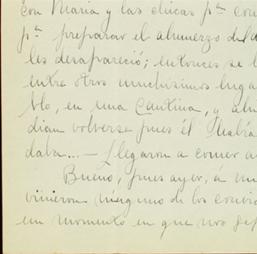 con María y las chicas pª com
pª preparar el almuerzo del d
les desapareció; entonces se l
entre otros muchísimos luga
blo, en una Cantina, y al
dían volverse pues él
daba... — Llegaron a comer a
Bueno, pues ayer, á un
vinieron ninguno de los convid
un momento en que nos dej